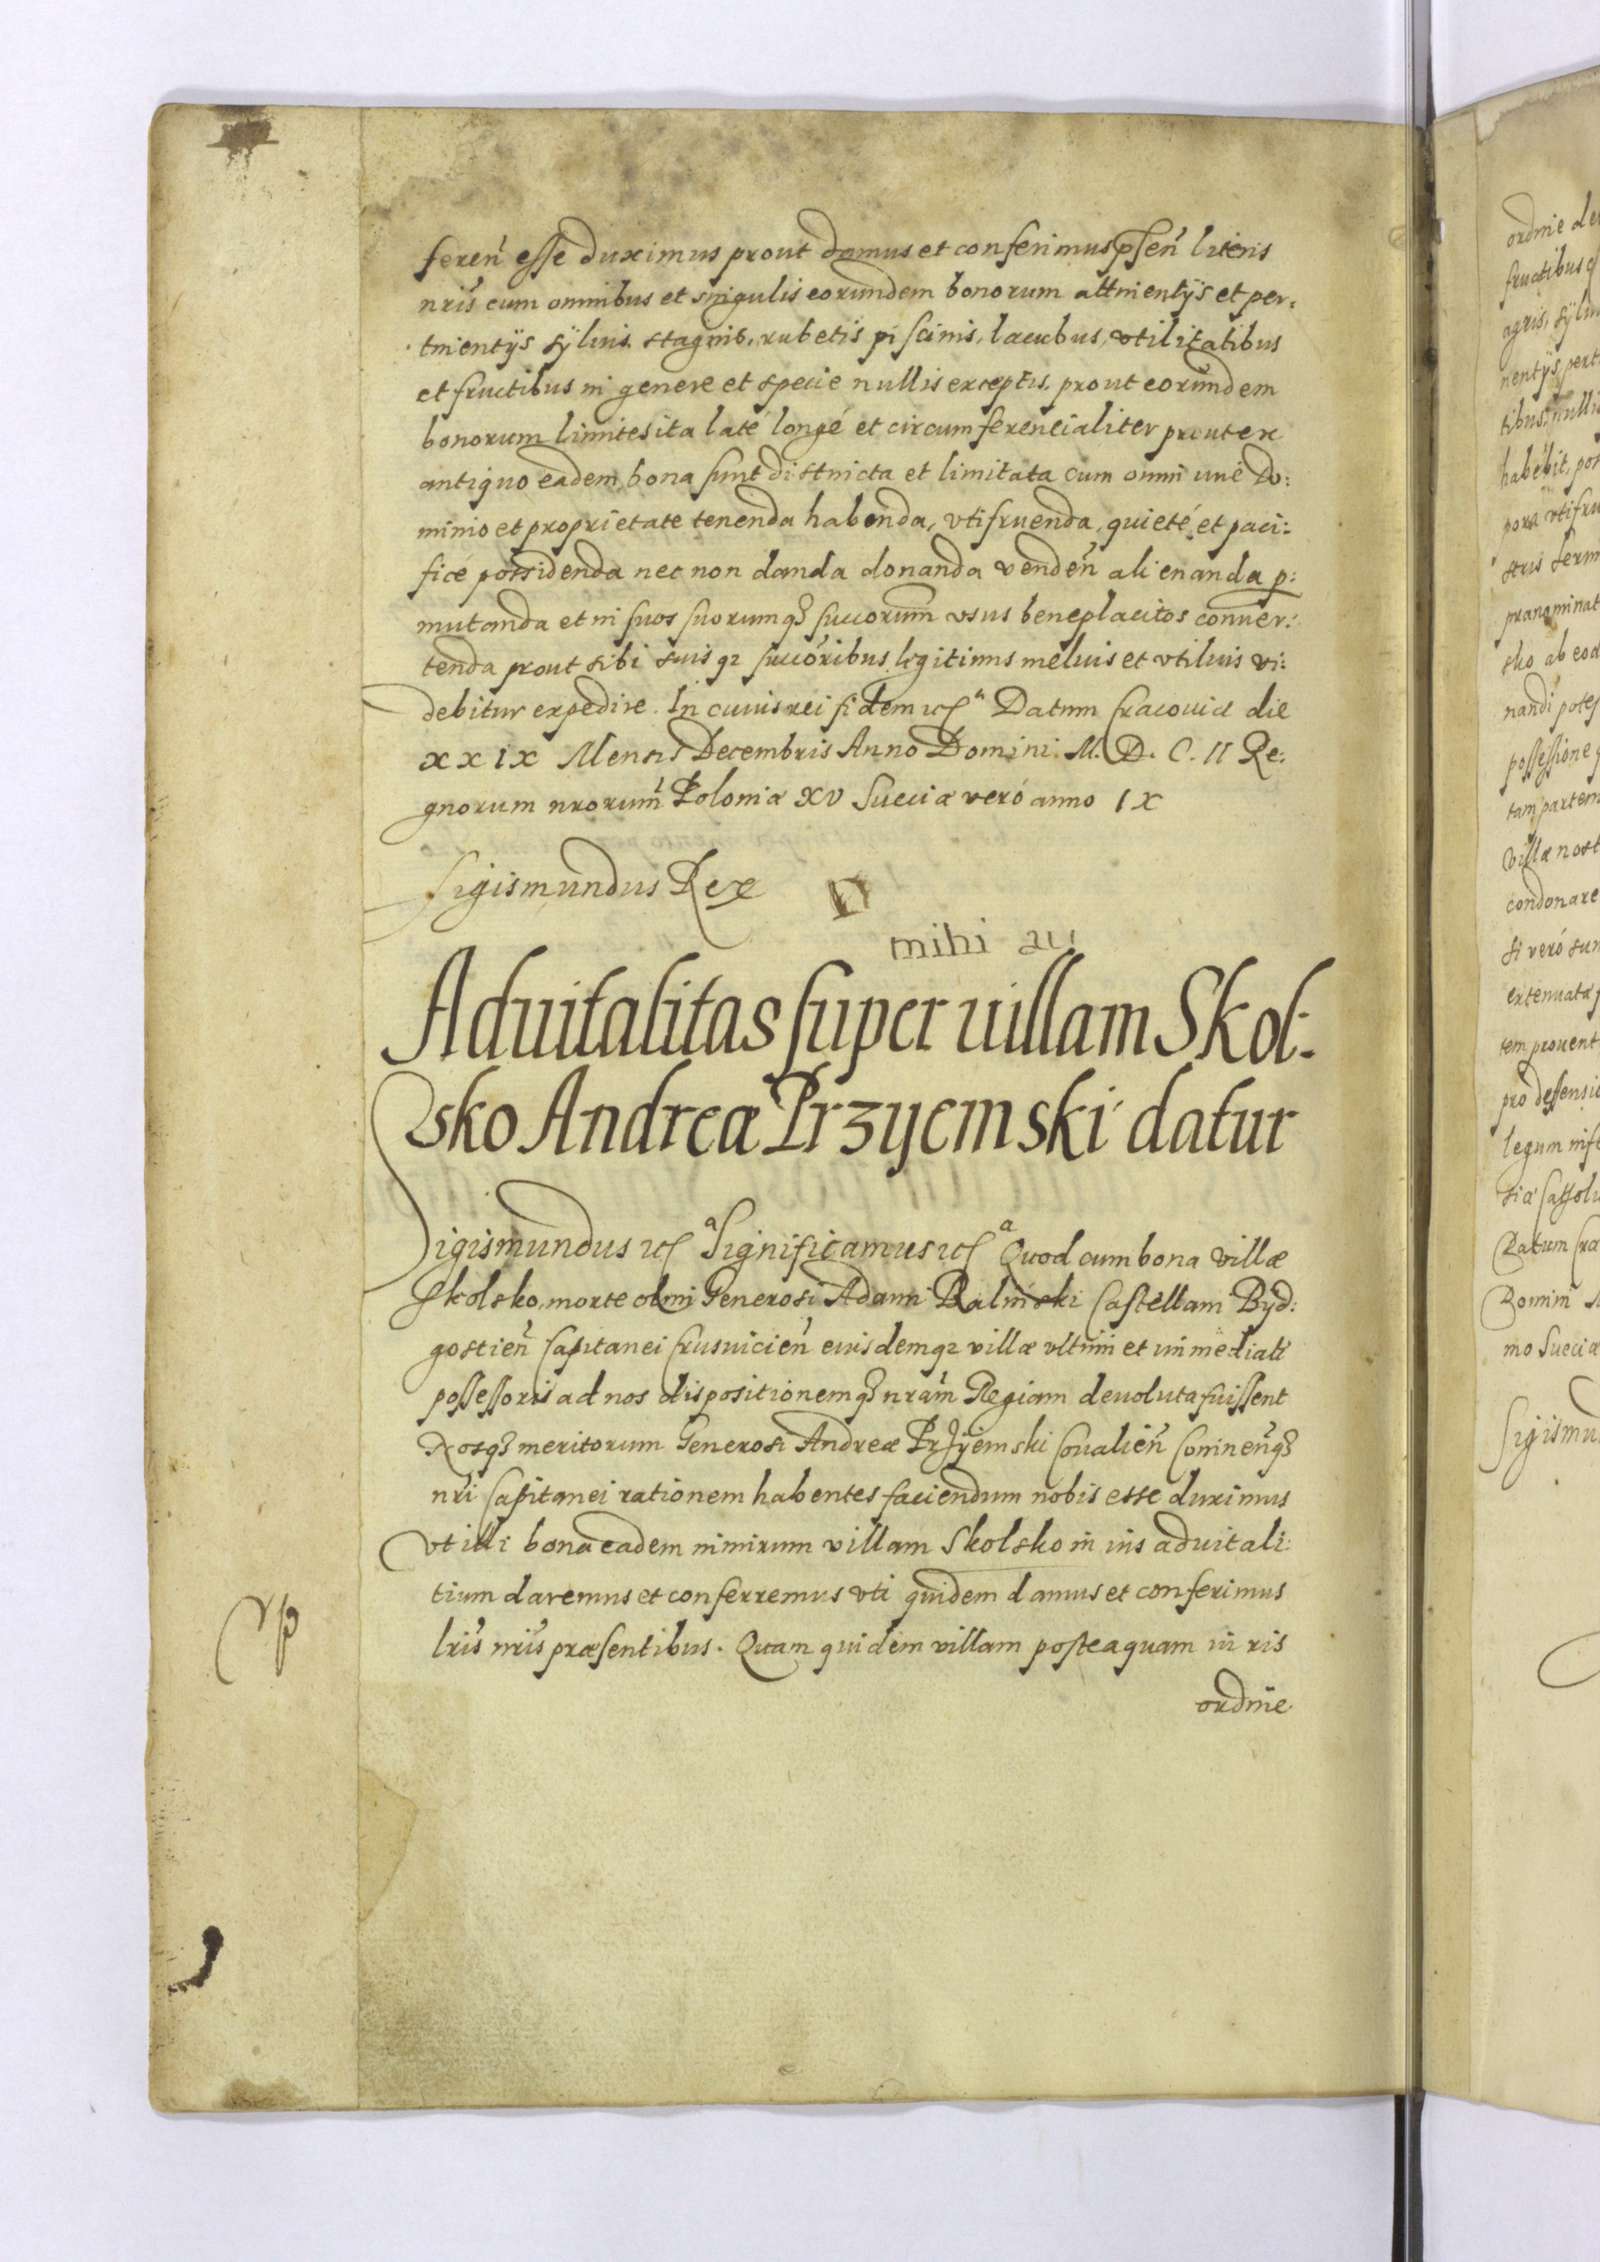 feren̄ esse duximus prout damus et conferimus pn̄sen̄ literis
nr̄is cum omnibus et singulis eorundem bonorum attinentÿs et per:
tinentÿs sÿluis stagnis, rubetis piscinis, lacubus, vtilitatibus
et fructibus in genere et specie nullis exceptis, prout eorundem
bonorum limites ita laté longé et circumferencialiter prout ex
antiquo eadem bona sunt districta et limitata cum omni iure Do:
minio et proprietate tenenda habenda, vtifruenda, quieté et paci:
ficé possidenda nec non danda donanda venden̄ alienanda p:
mutanda et in suos suorumq3 succorum̄ vsus beneplacitos conuer:
tenda prout sibi suisq3 succōribus legitimis melius et vtilius vi:
debitur expedire. In cuius rei fidem etc̃ Datum Cracouiæ die
XXIX Mensis Decembris Anno Domini. M. D. C. II Re:
gnorum nrorum̄ Poloniæ XV Sueciæ veró anno IX
Sigismundus Rex
mihi au
Aduitalitas super uillam Skol:
sko Andreæ Przyemski datur
Sigismundus etc̃ a Significamus etc̃ a Quod cum bona villæ
Skolsko, morte olim Generosi Adami Baliński Castellani Byd:
gostien̄ Capitanei Crusuicien̄ eiusdemq3 villæ vltimi et immediati
possessoris ad nos dispositionemq3 nrām Regiam deuoluta fuissent
Nosq3 meritorum Generosi Andreæ Przÿemski Coualien̄ Coninen̄q3
nr̄i Capitanei rationem habentes faciendum nobis esse duximus
vt illi bona eadem nimirum villam Skolsko in ius aduitali:
tium daremus et conferremus vti quidem damus et conferimus
lr̄is nr̄is præsentibus. Quam quidem villam posteaquam iuris
ordine